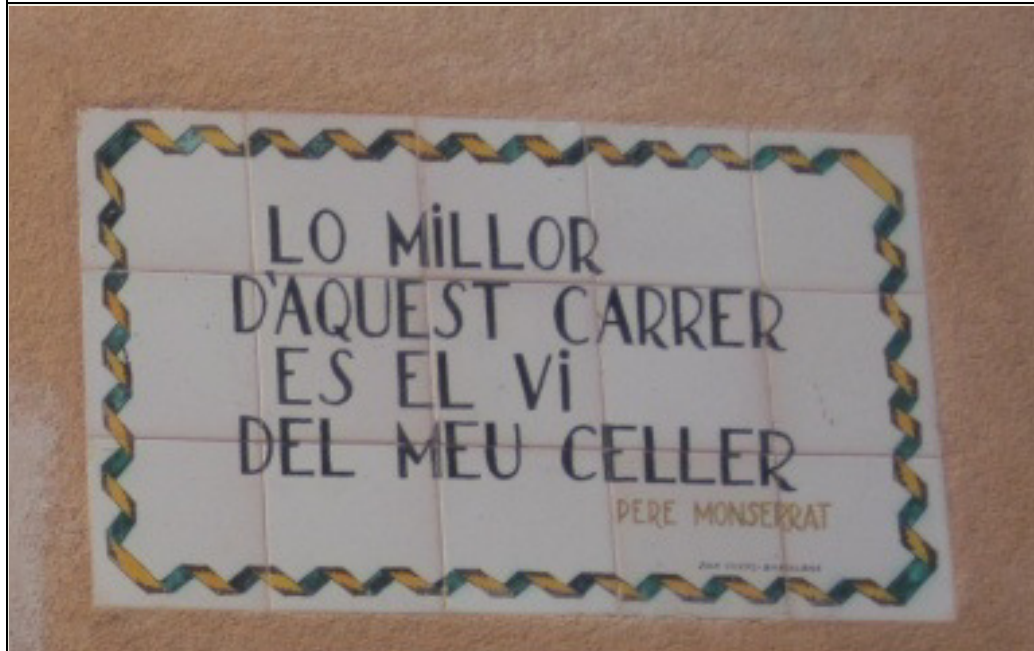 LO MiLLOR
D'AQUEST CARRER
ES EL Vi
DEL MEU CELLER
PERE MONSERRAT